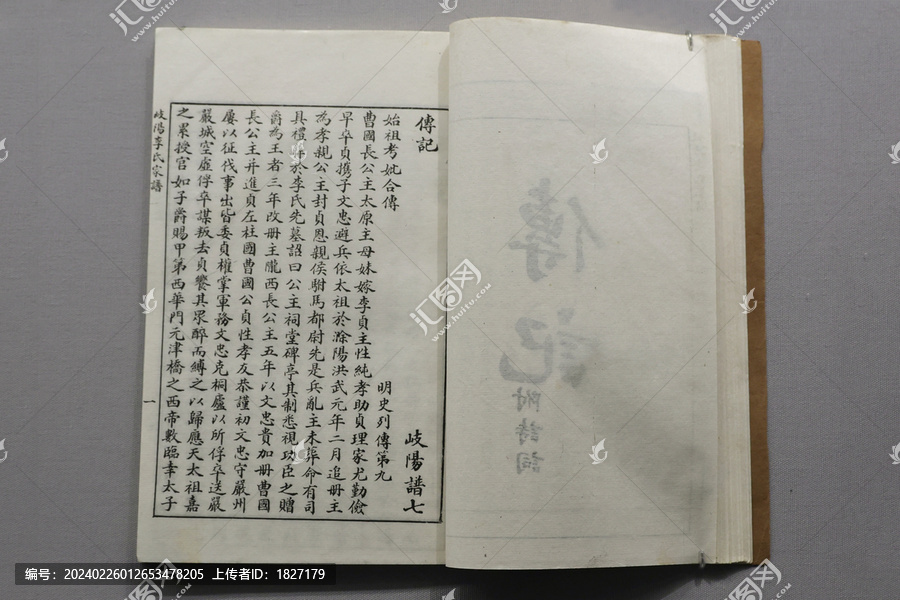 傳記
岐陽譜七
始祖考妣合傳
明史列傳第九
曹國長公主太原主母妹嫁李貞主性純孝助貞理家尤勤儉
早卒貞攜子文忠避兵依太祖於滁陽洪武元年二月追冊主
為孝親公主封貞恩親侯駙馬都尉先是兵亂主未葬命有司
具禮葬於李氏先墓詔曰公主祠堂碑亭其制悉視功臣之贈
爵為王者三年改冊主隴西長公主五年以文忠貴加冊曹國
長公主并進貞左柱國曹國公貞性孝友恭謹初文忠守嚴州
屢以征伐事出皆委貞權掌軍務文忠克桐廬以所俘卒送嚴
嚴城空虛俘卒謀叛去貞饗其眾醉而縛之以歸應天太祖嘉
之累授官如子爵賜甲第西華門元津橋之西帝數臨幸太子
岐陽李氏家譜
一
傳記
附詩詞
編号：20240226012653478205 上传者ID：1827179
汇图网
www.huitu.com